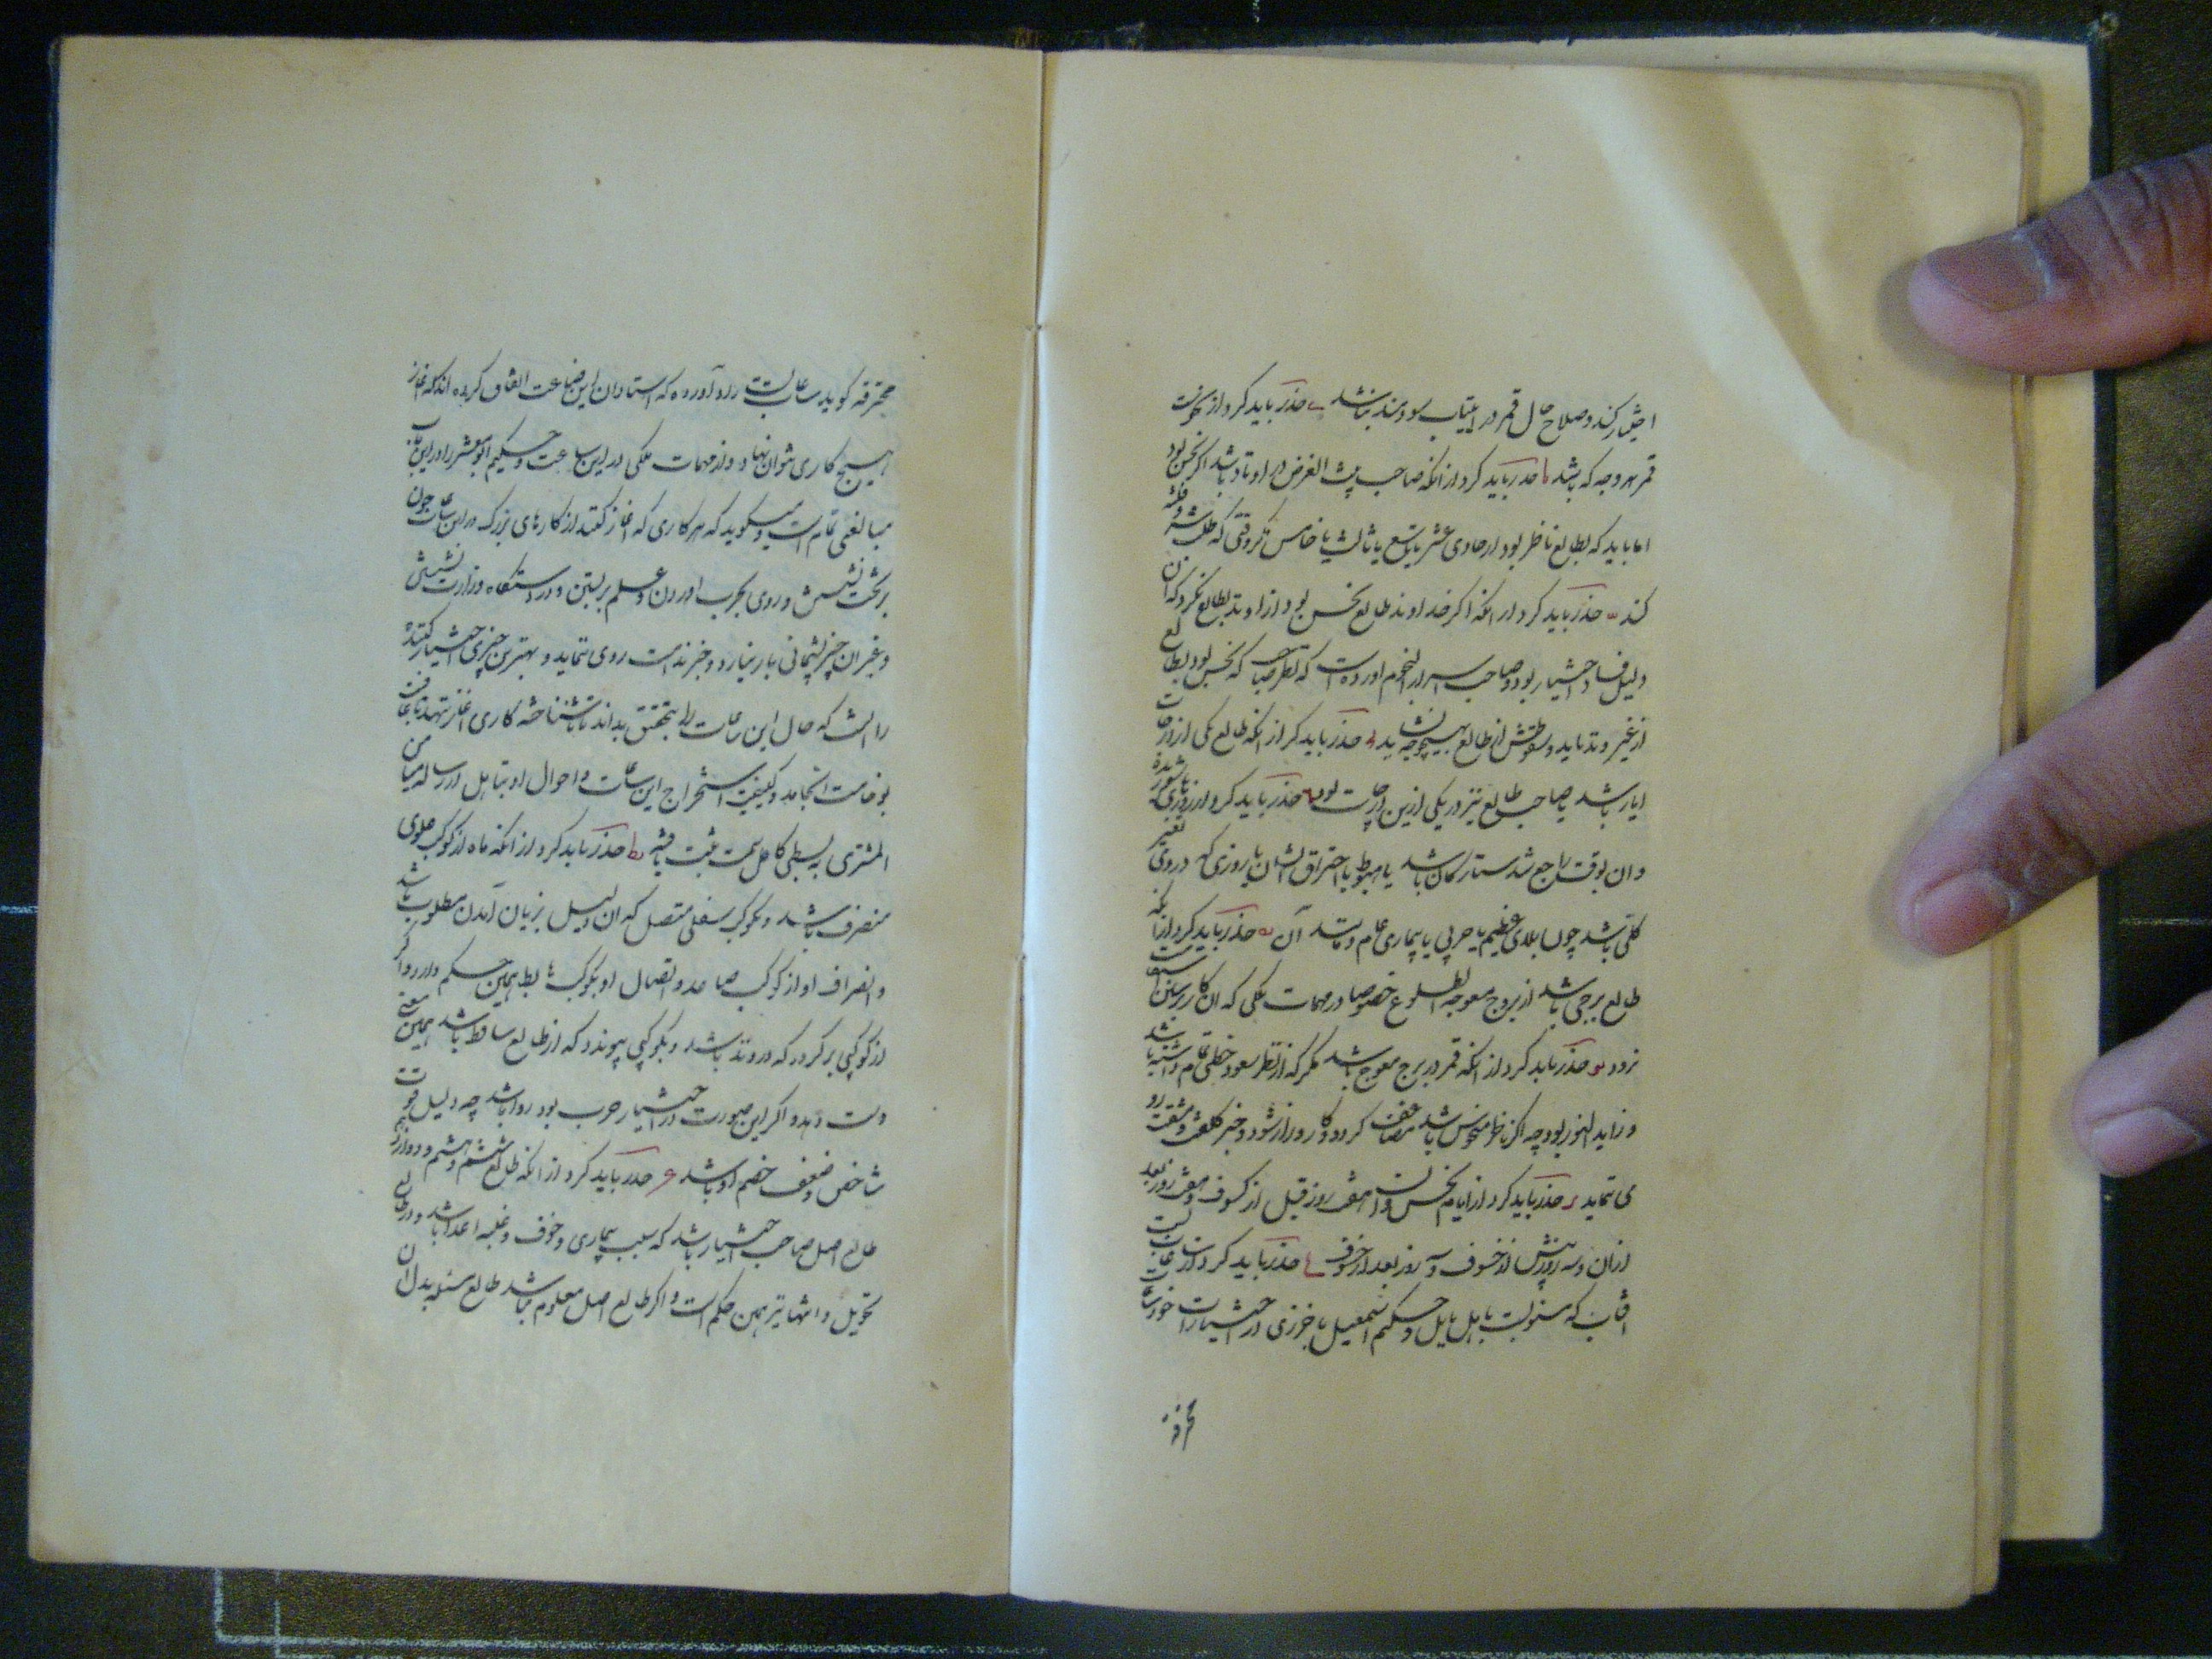 اختیار کند و صلاح حال قمر در این باب سودمند نباشد ی حذر باید کرد از نحوست
قمر بهر وجه که باشد یا حذر باید کرد از آنکه صاحب بیت الغرض در اوتاد باشد اگر نحس بود
اما باید که بطالع ناظر بود از حادی عشر یا تاسع یا ثالث یا خامس مگر وقتی که طلب شر و فتنه
کند یب حذر باید کرد از آنکه اگر خداوند طالع نحس بود از اوتد بطالع نکرد که آن
دلیل فساد اختیار بود و صاحب اسرار النجوم آورده است که نظر صاحب که نحس بود بطالع
از غیر وتد باید و سقوطش از طالع بهیچوجه نشاید یج حذر باید کرد از آنکه طالع یکی از درجات
ابار باشد یا صاحب طالع نیز در یکی ازین درجات بود ید حذر باید کرد از روزی که
و آن بوقت راجع شدن ستارگان باشد یا هبوط یا احتراق ایشان یا روزی که در وی تغییر
کلی باشد چون بلای عظیم یا حربی یا بیماری عام و مانند آن یه حذر باید کرد از آنکه
طالع برجی باشد از بروج معوجة الطلوع خصوصا در مهمات ملکی که آن کار بر سنن استقامت
نرود یو حذر باید کرد از آنکه قمر در برج معوج باشد مگر که از نظر سعود حظی تمام داشته باشد
و زاید النور بود چه اگر ناظر منحوس باشد مضاعف گردد و کار دراز شود و جز کلفت و مشقت رو
می نماید یز حذر باید کرد از ایام نحس و آن هفت روز قبل از کسوف و هفت روز بعد
از آن و سه روز پیش از خسوف و سه روز بعد از خسوف یح حذر باید کرد از ساعات بست
آفتاب که منسوبست باهل بابل و حکیم اسمعیل باخرزی در اختیارات خود ساعات
محترقه
محترقه گوید ساعات بست آورده که استادان این صناعت اتفاق کرده اند که آغاز
هیچ کاری نتوان نهاد و از مهمات ملکی در این ساعت و حکیم ابومعشر را در این باب
مبالغتی تمام است و میگوید که هر کاری که آغاز کنند از کارهای بزرگ در این ساعات چون
بر تخت نشستن و روی بحرب آوردن و علم بر بستن و در دستگاه وزارت نشستن
و غیر آن جز پشیمانی بار نیارد و جز ندامت روی ننماید و بهترین چیزی اختیار کننده
را آنست که حال این ساعات را بتحقیق بداند تا ناشناخته کاری آغاز ننهد تا عاقبت
بوخامت انجامد و کیفیت استخراج این ساعات و احوال او بتاهل از رساله میامن
المشتری به بسطی کامل سمت ثبت یافته یط حذر باید کرد از آنکه ماه از کوکب علوی
منصرف باشد و بکوکب سفلی متصل که آن دلیل بزیان آمدن مطلوب باشد
و انصراف او از کوکب صاعد و اتصال او بکوکب هابط همین حکم دارد و اگر
از کوکبی برگردد که در وتد باشد و بکوکبی پیوندد که از طالع ساقط باشد همین معنی
دست دهد و اگر این صورت در اختیار حرب بود روا باشد چه دلیل قوت
شاخص و ضعف خصم او باشد ک حذر باید کرد از آنکه طالع ششم و هشتم و دوازدهم
طالع اصل صاحب اختیار باشد که سبب بیماری و خوف و غلبه اعدا باشد و در طالع
تحویل و انتها نیز همین حکم است و اگر طالع اصل معلوم نباشد طالع مسئله بدل آن